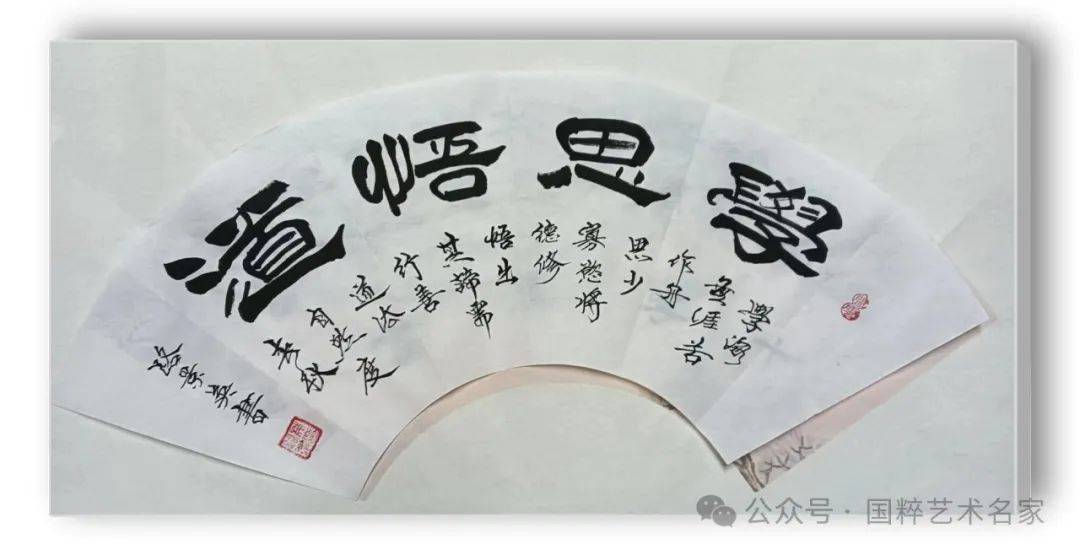 學思悟道
學海
無涯
作舟
思少
寡慾將
德修
悟出
真諦常
行善
道法
自然度
春秋
景英書
公众号·国粹艺术名家